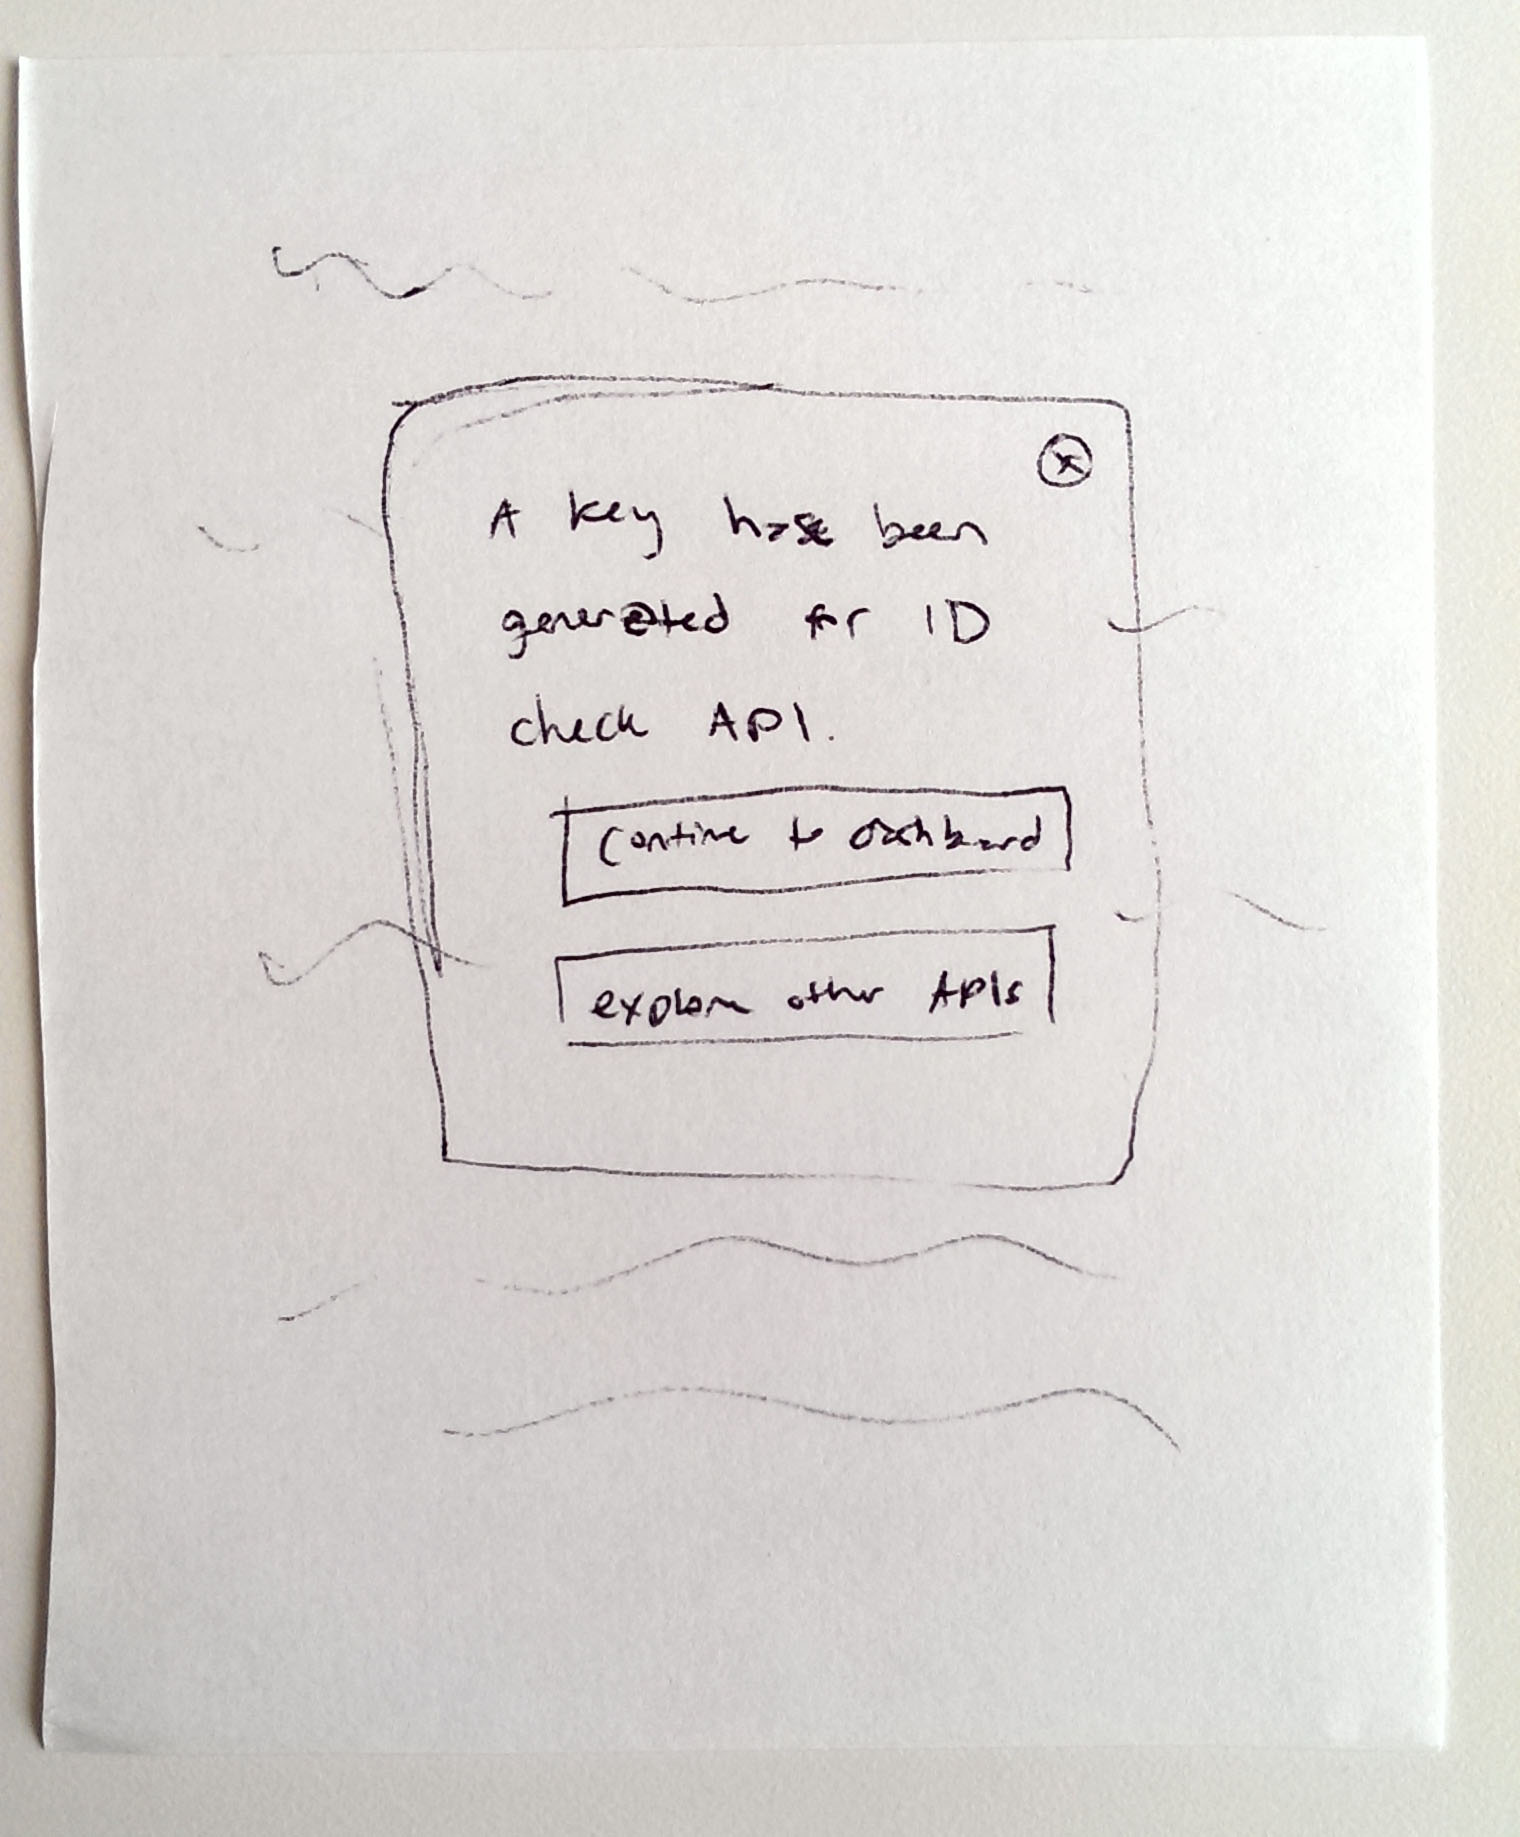 A key has been
generated for ID
check API.
Continue to dashboard
explore other APIs